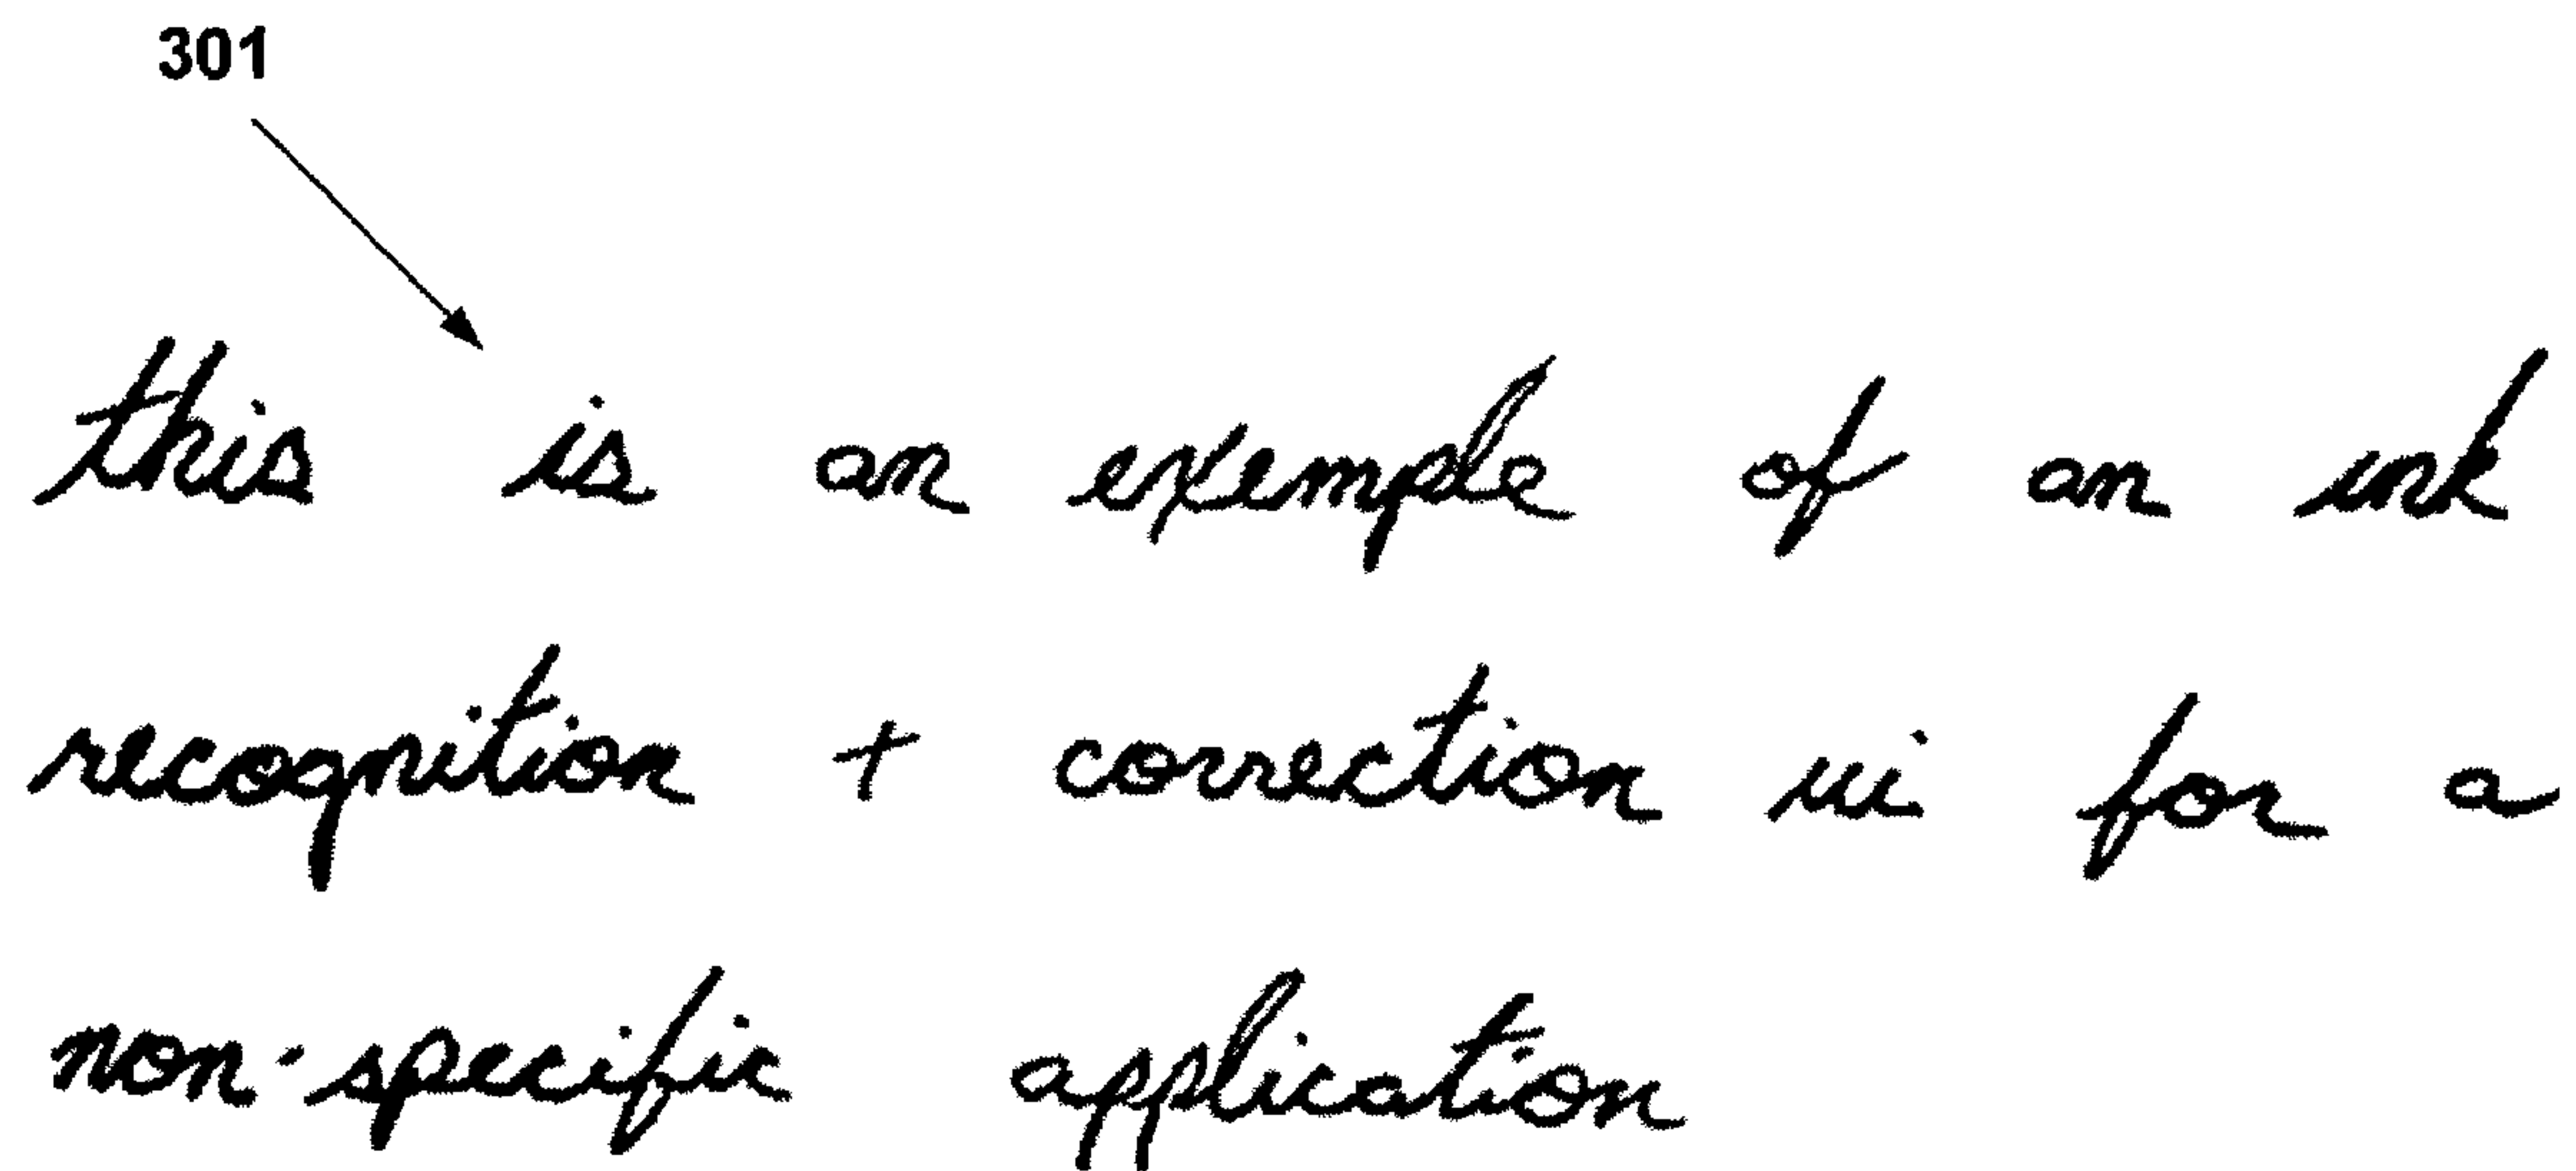 301
this is an exemple of an ink
recognition + correction ui for a
non-specific application